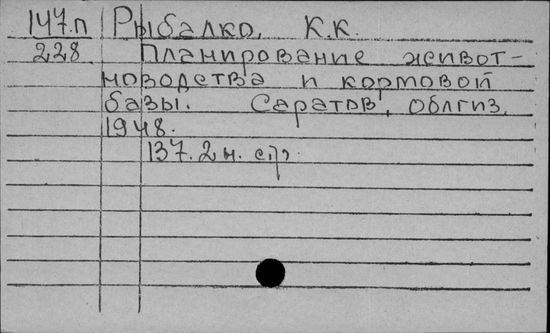 147.п Рыбалко, К.К.
228 Планирование живот-
новодства и кормовой
базы. Саратов, облгиз,
1948.
137.2 н. стр.